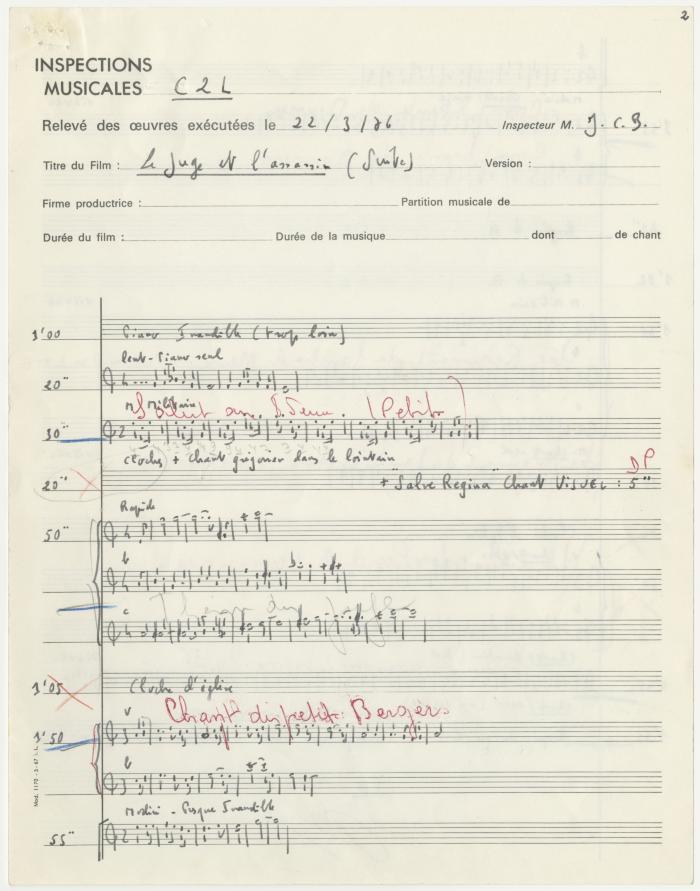 2
INSPECTIONS
MUSICALES C2L
Relevé des œuvres exécutées le 22/3/76 Inspecteur M. J.C.B.
Titre du Film : Le Juge et l'assassin (Suite) Version :
Firme productrice : Partition musicale de
Durée du film : Durée de la musique dont de chant
1'00 Piano Inaudible (trop loin)
lent - Piano seul
20"
Militaire
Salut au (Petit
30"
Cloches + chant grégorien dans le lointain
DP
20" + "Salve Regina" Chant VISUEL : 5"
Rapide
50"
b
c
1'05 Cloche d'église
Chant des petits Bergers
1'50
b
Presque Inaudible
55"
Mod. 1170 - 3 - 67 I. L.